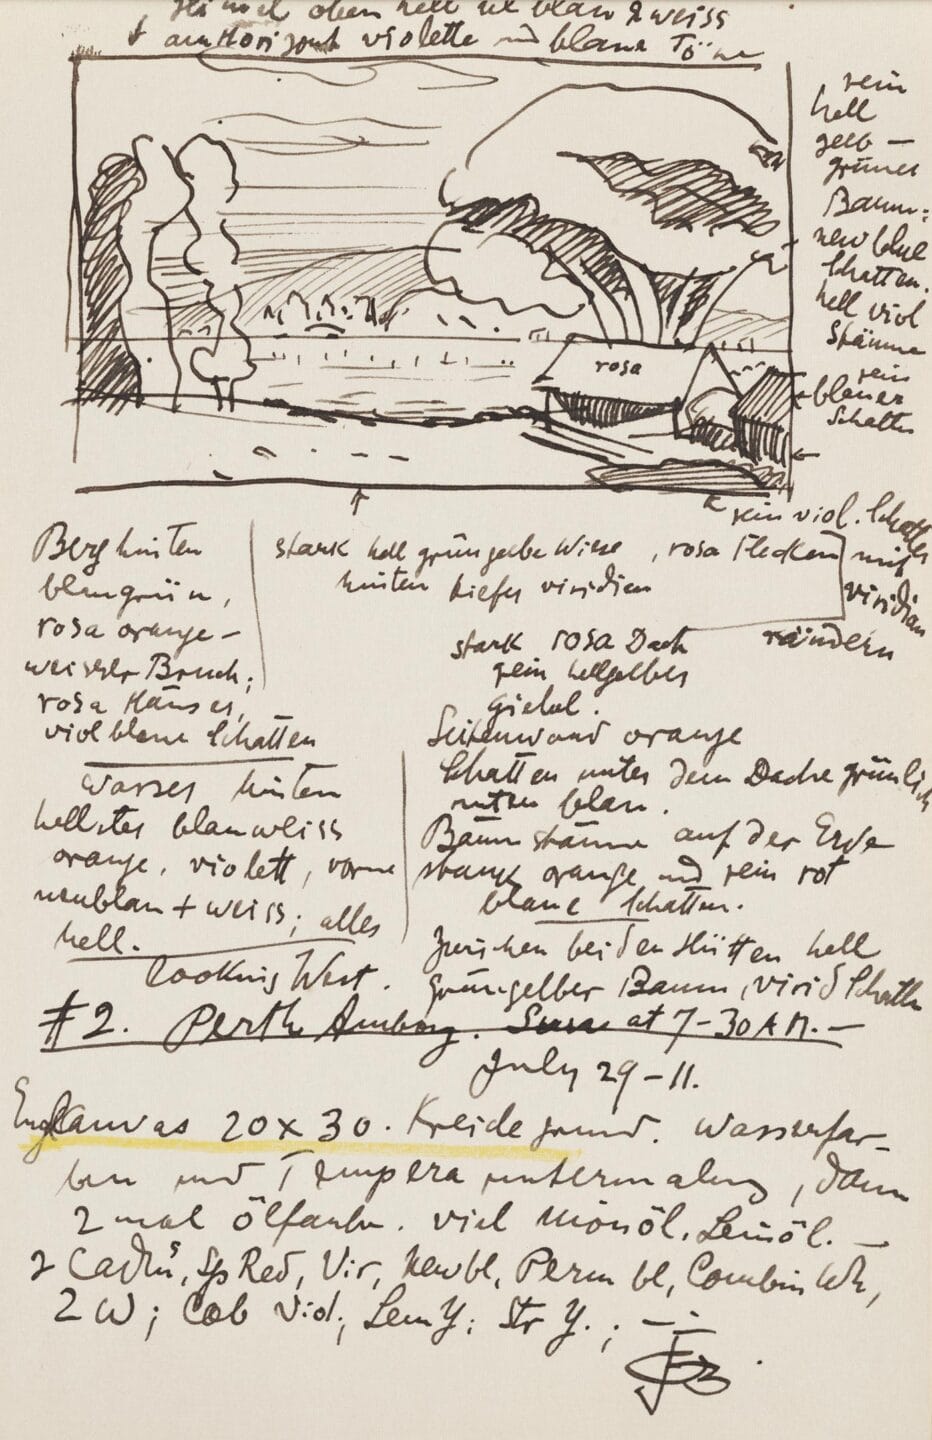 Himmel oben hell ul blau & weiss
+ am Horizont violette und blaue Töne
rein
hell
gelb –
grüner
Baum:
new blue
Schatten.
hell viol
Stämme
rein
blauer
Schatten
rosa
rein viol. Schatten
mit
viridian
rändern
Berg hinten
blaugrün,
rosa orange –
weisser Bruch;
rosa Häuser,
violblaue Schatten
stark hell grüngelbe Wiese , rosa Flecken
hinten tiefes viridian
stark rosa Dach
rein hellgelber
Giebel.
Seitenwand orange
Schatten unter dem Dache grünlich
unten blau.
Baumstämme auf der Erde
stark orange und rein rot
blaue Schatten.
zwischen beiden Hütten hell
grüngelber Baum, virid Schatten
Wasser hinten
hellstes blauweiss
orange, violett, vorne
neublau + weiss; alles
hell.
looking West.
#2. Perth Amboy. Sun at 7-30 A M. –
July 29 – 11.
Engl Canvas 20 x 30. Kreidegrund. Wasserfar-
ben und Tempera untermalung, dann
2 mal ölfarbe. viel Mohnöl, Leinöl. –
2 Cadms, Sp Red, Vir, Newbl, Perm bl, Combin Wh,
2 W; Cob Viol; Lem Y; Str Y. ; –